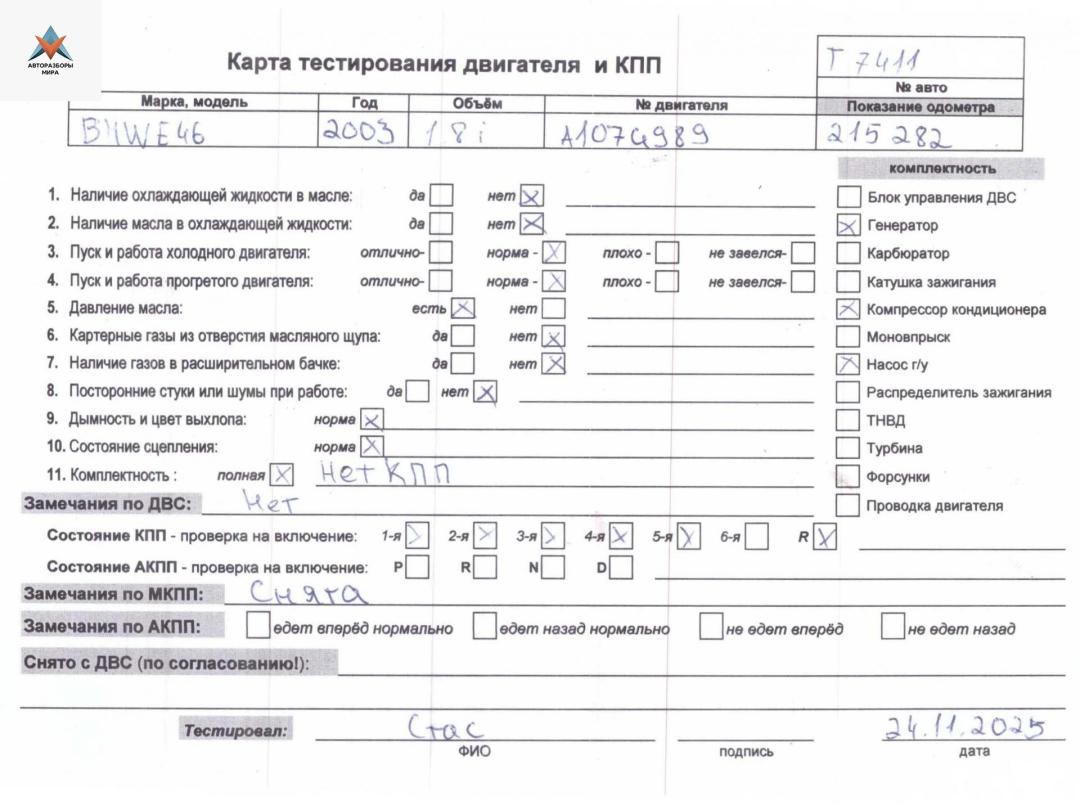 АВТОРАЗБОРЫ
МИРА
Карта тестирования двигателя и КПП
T 7411
№ авто
Марка, модель Год Объём № двигателя Показание одометра
BMW E46 2003 1.8i A107G989 215 282
комплектность
1. Наличие охлаждающей жидкости в масле: да нет
Блок управления ДВС
2. Наличие масла в охлаждающей жидкости: да нет
Генератор
3. Пуск и работа холодного двигателя: отлично- норма - плохо - не завелся-
Карбюратор
4. Пуск и работа прогретого двигателя: отлично- норма - плохо - не завелся-
Катушка зажигания
5. Давление масла: есть нет
Компрессор кондиционера
6. Картерные газы из отверстия масляного щупа: да нет
Моновпрыск
7. Наличие газов в расширительном бачке: да нет
Насос г/у
8. Посторонние стуки или шумы при работе: да нет
Распределитель зажигания
9. Дымность и цвет выхлопа: норма
ТНВД
10. Состояние сцепления: норма
Турбина
11. Комплектность : полная Нет КПП
Форсунки
Замечания по ДВС: Нет
Проводка двигателя
Состояние КПП - проверка на включение: 1-я 2-я 3-я 4-я 5-я 6-я R
Состояние АКПП - проверка на включение: P R N D
Замечания по МКПП: Снята
Замечания по АКПП: едет вперёд нормально едет назад нормально не едет вперёд не едет назад
Снято с ДВС (по согласованию!):
Тестировал: Стас 24.11.2025
ФИО подпись дата